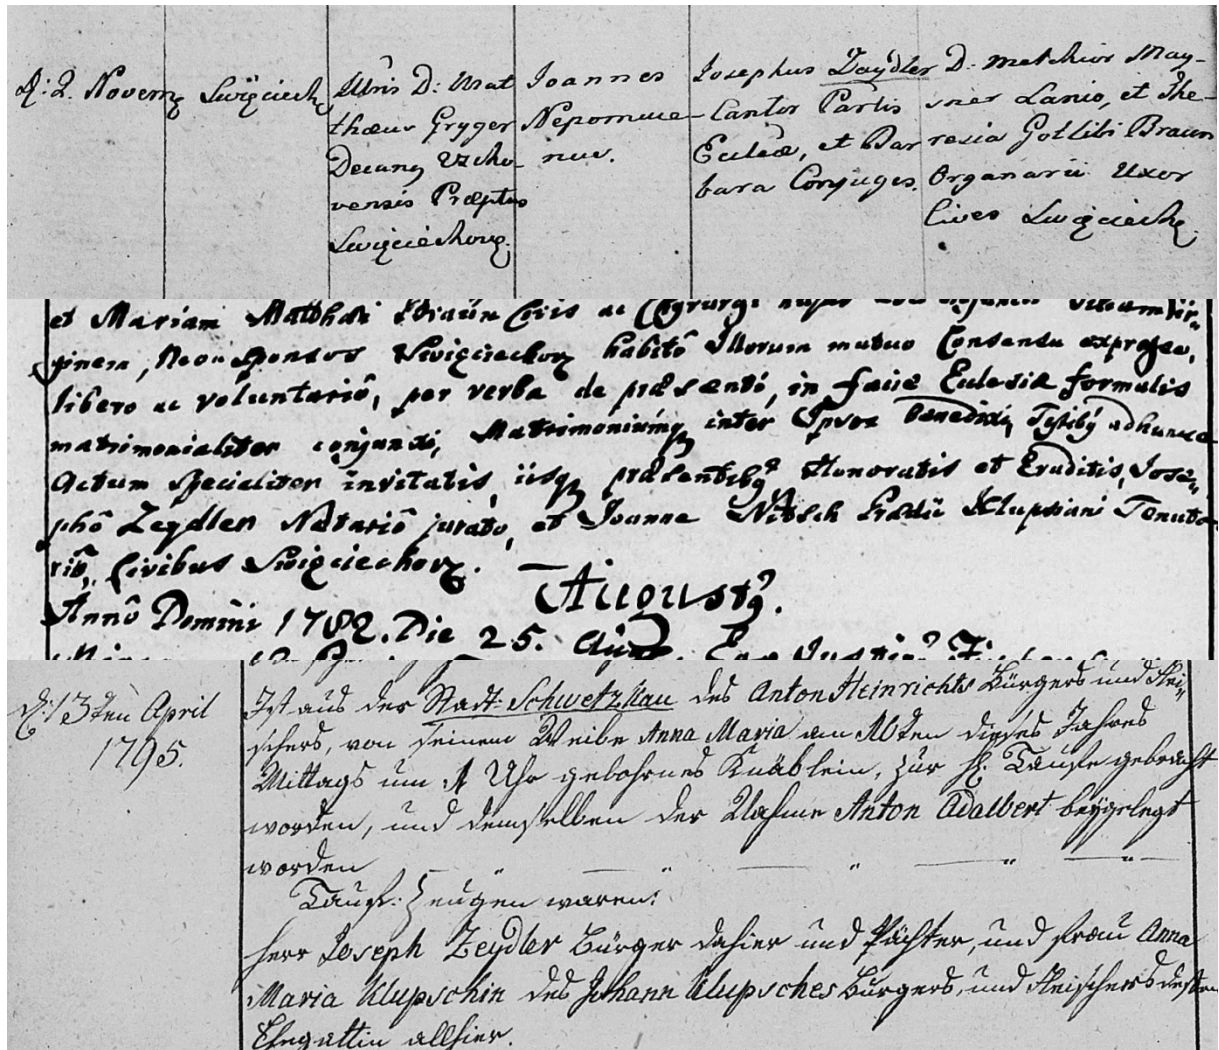 d: 2. Novem
Swięciech
Illris D: Mat
thæus Gryger
Decang
vensis Præptus
Swięciechovg.
Joannes
Nepomuce-
nus.
Josephus Zaydler
Cantor Partis
Eccleæ, et Bar
bara Conjuges.
D: Melchior May-
sner Lanio, et The-
resia Gotlibi Braun
Organarii Uxor
Cives Swięciech
et Mariam Matthæi Braün Civis ac Chyrurgi
ginem, Neosponsos Swięciechov habitô Illorum mutuo Consensu expresso,
libero ac voluntariô, per verba de præsenti, in facie Ecclesiæ formalis
matrimonialiter conjunxi, Matrimoniumq inter Ipsos benedixi, Testibg adhunce
Actum specialiter invitatis, iisq præsentibg Honoratis et Eruditis, Jose-
phô Zeydler Notariô jurato, et Joanne Nitsch Prædii Klupsiani Tenuto-
riô, Civibus Swięciechov.
Augustg.
Annô Domini 1782. Die 25.
d: 13ten April
1795.
Ist aus der Stadt Schwetzkau des Anton Heinrichts Bürgers und Flei-
schers, von seinem Weibe Anna Maria am 10ten dieses Jahres
Mittags um 1 Uhr gebohrnes Knäblein, zur Hl: Taufe gebracht
worden, und demselben der Nahme Anton Adalbert beygelegt
worden
Tauf: Zeugen waren:
Herr Joseph Zeydler Bürger dahier und Pächter, und Frau Anna
Maria Klupschin des Johann Klupsches Bürgers, und Fleischers
Ehegattin allhier.